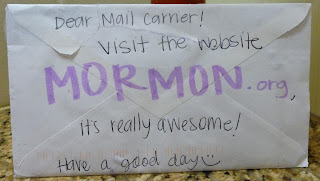 Dear Mail Carrier!
Visit the website
MORMON.org,
it's really awesome!
Have a good day